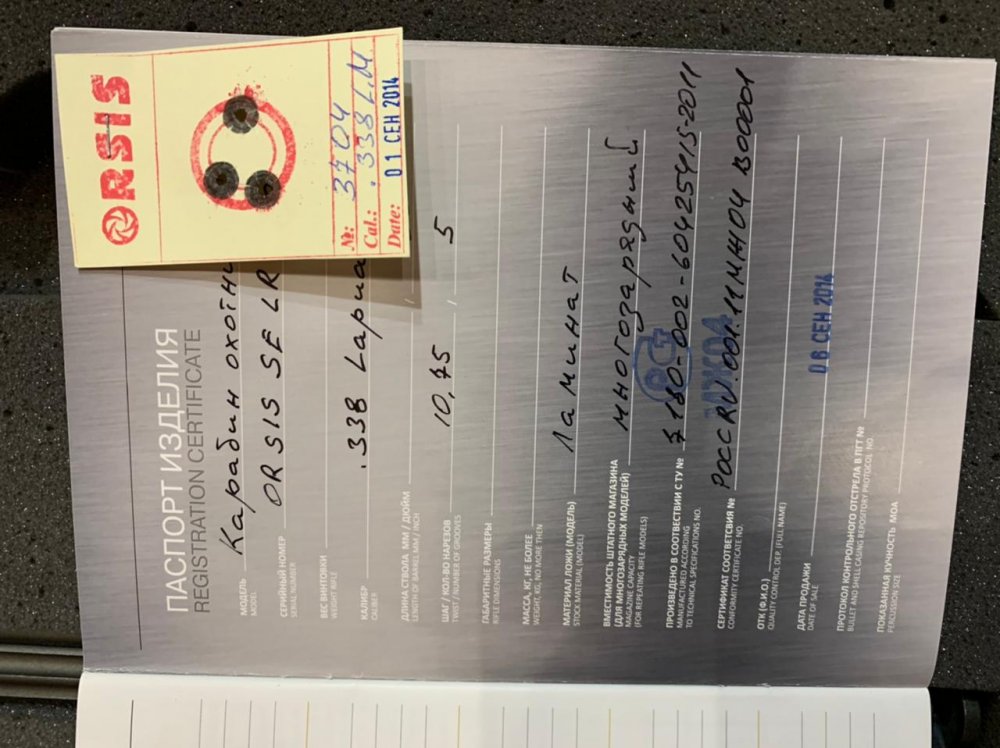 ПАСПОРТ ИЗДЕЛИЯ
REGISTRATION CERTIFICATE
МОДЕЛЬ Карабин охотни
MODEL
ORSIS SE LR
СЕРИЙНЫЙ НОМЕР
SERIAL NUMBER
ВЕС ВИНТОВКИ
WEIGHT RIFLE
КАЛИБР .338 Lapua
CALIBER
ДЛИНА СТВОЛА ММ / ДЮЙМ /
LENGTH OF BARREL MM / INCH
ШАГ / КОЛ-ВО НАРЕЗОВ 10,75 / 5
TWIST / NUMBER OF GROOVES
ГАБАРИТНЫЕ РАЗМЕРЫ
RIFLE DIMENSIONS
МАССА, КГ, НЕ БОЛЕЕ
WEIGHT, KG, NO MORE THEN
МАТЕРИАЛ ЛОЖИ (МОДЕЛЬ) Ламинат
STOCK MATERIAL (MODEL)
ВМЕСТИМОСТЬ ШТАТНОГО МАГАЗИНА
(ДЛЯ МНОГОЗАРЯДНЫХ МОДЕЛЕЙ) многозарядный
MAGAZINE CAPACITY
(FOR REPEATING RIFLE MODELS)
ПРОИЗВЕДЕНО В СООТВЕТСТВИИ С ТУ № 7180-002-60425415-2011
MANUFACTURED ACCORDING
TO TECHNICAL SPECIFICATIONS NO.
РСТ
МЖ04
СЕРТИФИКАТ СООТВЕТСВИЯ № РОСС RU.001.11МЖ04 В00001
CONFORMITY CERTIFICATE NO.
ОТК (Ф.И.О.)
QUALITY CONTROL DEP. (FULL NAME)
ДАТА ПРОДАЖИ 06 СЕН 2014
DATE OF SALE
ПРОТОКОЛ КОНТРОЛЬНОГО ОТСТРЕЛА В ПГТ №
BULLET AND SHELL CASING REPOSITORY PROTOCOL NO.
ПОКАЗАННАЯ КУЧНОСТЬ МОА
PERCUSSION SIZE
ORSIS
№: 3704
Cal.: .338 L.M
Date: 01 СЕН 2014